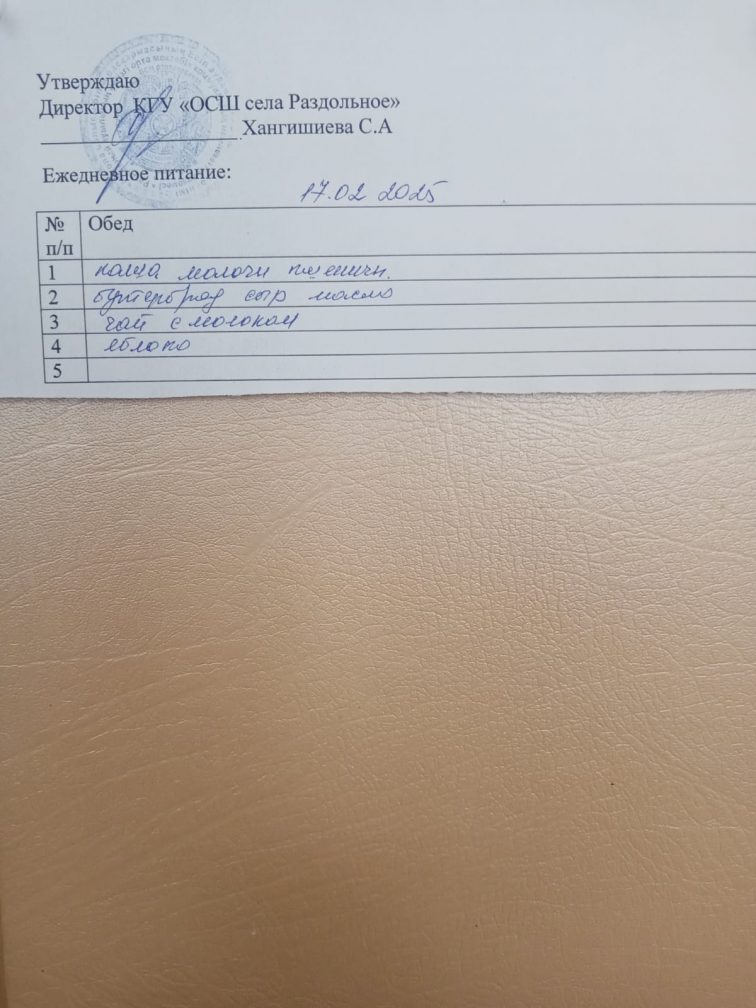 Утверждаю
Директор КГУ «ОСШ села Раздольное»
Хангишиева С.А
Ежедневное питание:
17.02 2025
№ п/п Обед
1 каша молочн пшеничн.
2 бутерброд сыр масло
3 чай с молоком
4 яблоко
5